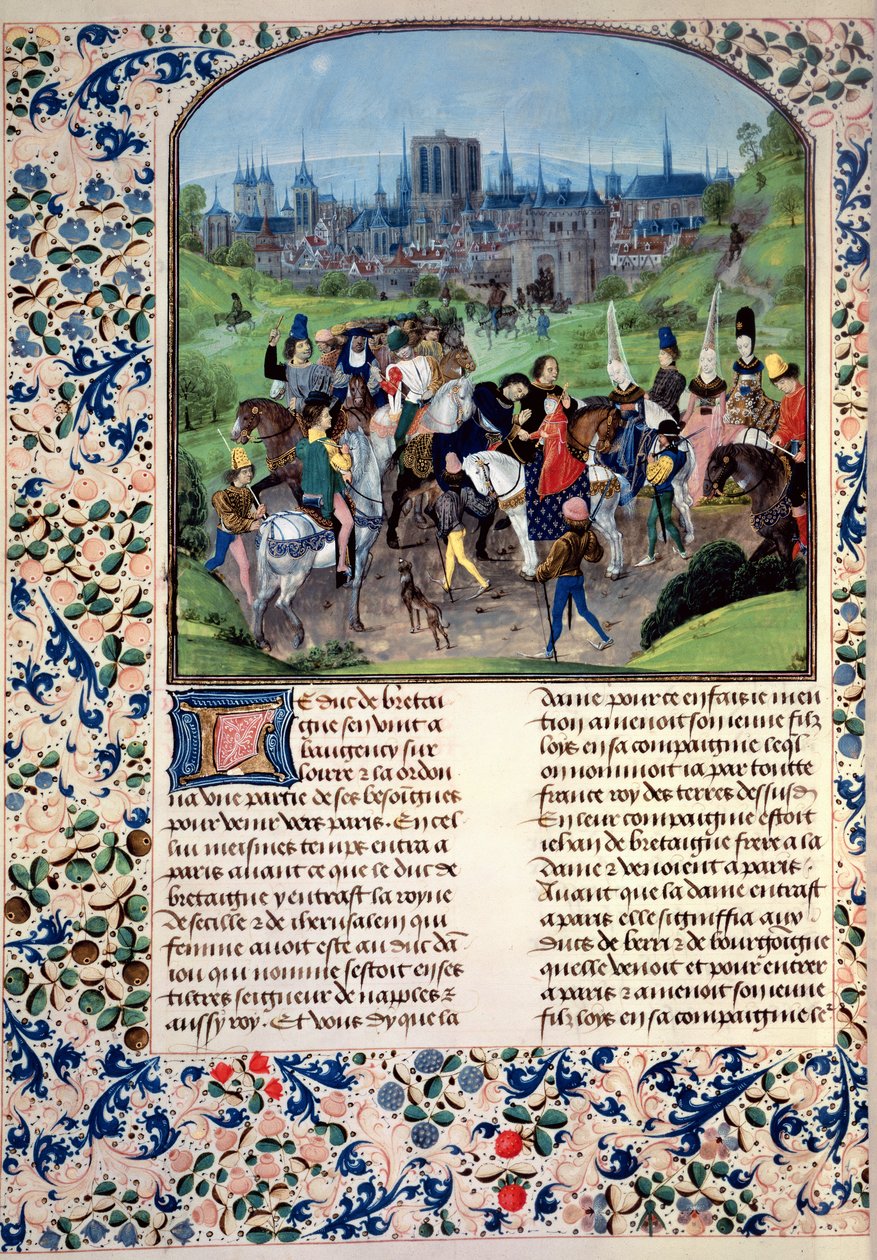 Le duc de bretai
gne sen vint a
baugency sur
loirre ⁊ la ordon
na vne partie de ses besoingnes
pour venir vers paris. En cel
lui meismes temps entra a
paris auant ce que le duc de
bretaigne y entrast la royne
de secille ⁊ de iherusalem qui
femme auoit este au duc dā
iou qui nomme sestoit en ses
tiltres seigneur de napples ⁊
aussy roy. Et vous dy que la
dame pour ce en fais ie men
tion amenoit son ieune filz
loys en sa compaignie leql̄
on nommoit ia par toutte
france roy des terres dessusd̄
En leur compaignie estoit
iehan de bretaigne frere a la
dame ⁊ venoient a paris.
Auant que la dame entrast
a paris elle signiffia aux
ducs de berri ⁊ de bourgoingne
quelle venoit et pour entrer
a paris ⁊ amenoit son ieune
filz loys en sa compaignie le